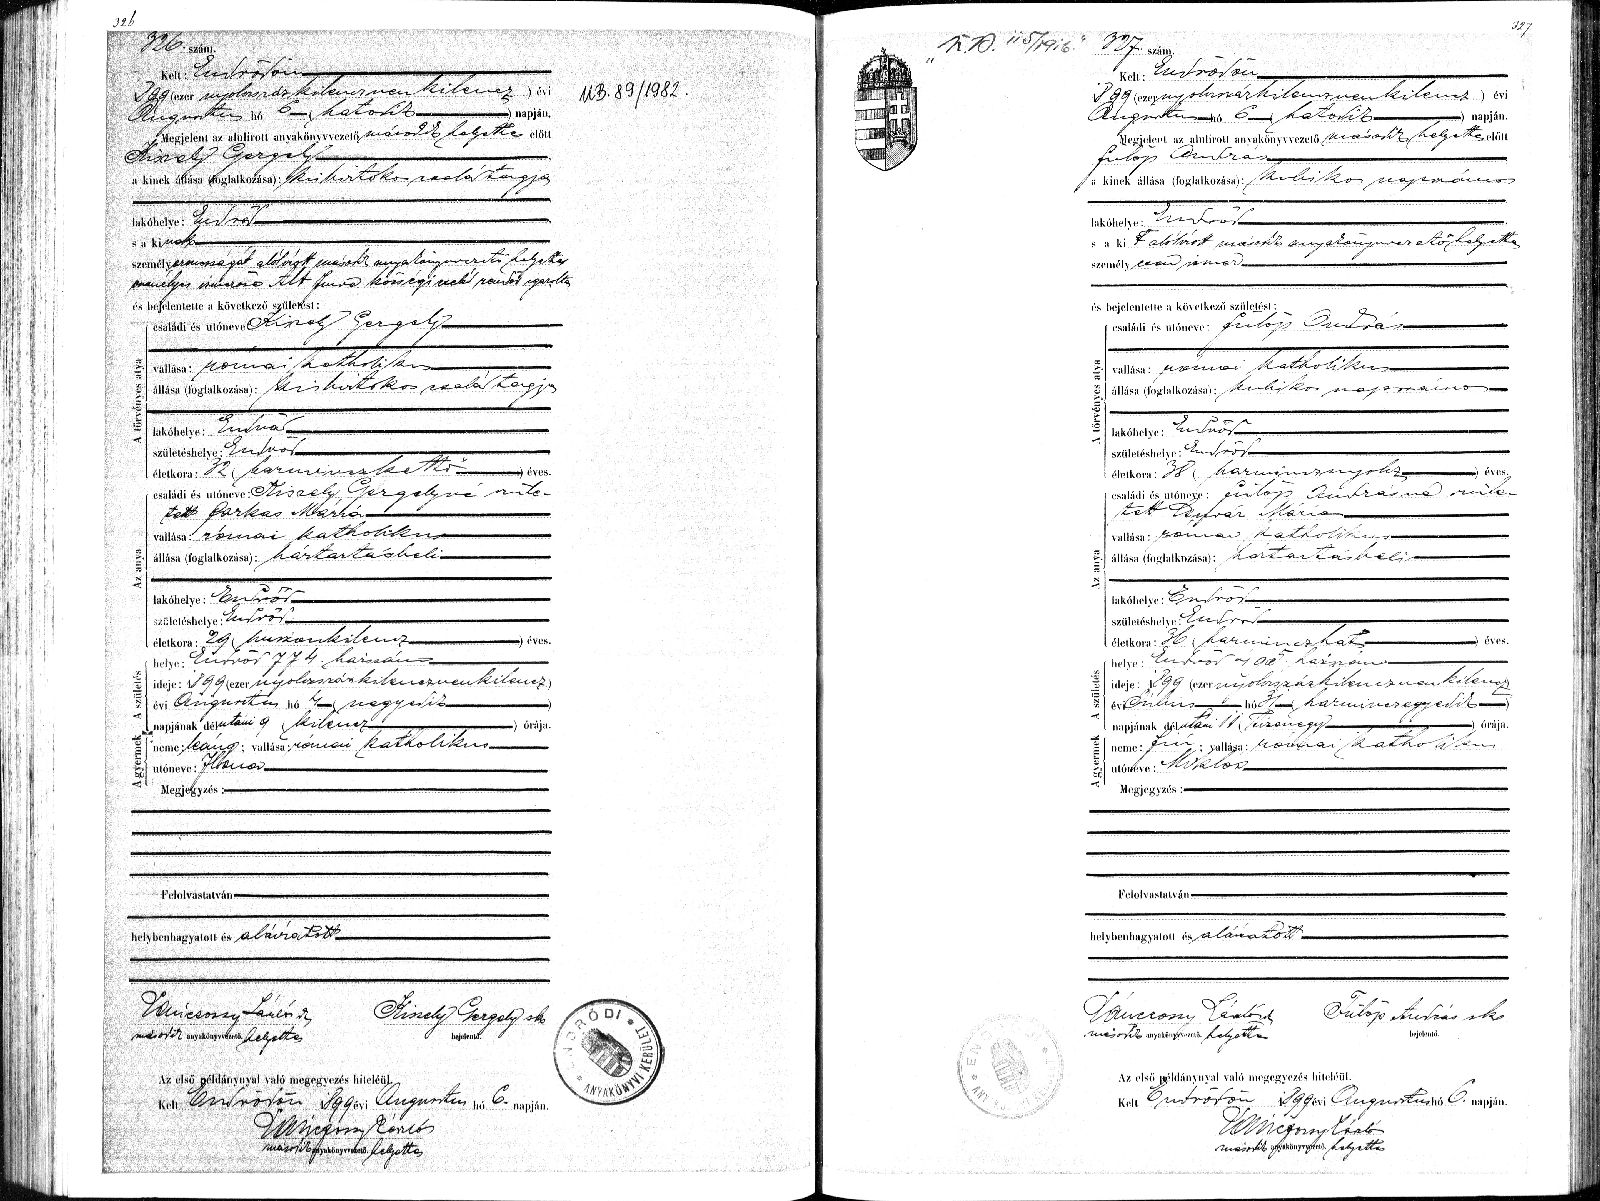 326
326. szám.
Kelt: Endrődön
899 (ezer nyolczszázkilenczvenkilencz) évi
Augusztus hó 6 (hatodik) napján.
Megjelent az alulirott anyakönyvvezető második helyettes előtt
Kiszely Gergely
a kinek állása (foglalkozása): kisbirtokos család tagja
lakóhelye: Endrőd
s a kinek
személyazonosságát alólirott második anyakönyvvezető helyettes
személyes ismerőse Alt községi rendőr igazolta
és bejelentette a következő születést:
A törvényes atya
családi és utóneve Kiszely Gergely
vallása: római katholikus
állása (foglalkozása): kisbirtokos család tagja
lakóhelye: Endrőd
születéshelye: Endrőd
életkora: 32 (harminczkettő) éves.
Az anya
családi és utóneve: Kiszely Gergelyné szüle-
tett Farkas Mária
vallása: római katholikus
állása (foglalkozása): háztartásbeli
lakóhelye: Endrőd
születéshelye: Endrőd
életkora: 29 (huszonkilencz) éves.
A születés
helye: Endrőd 774 házszám
ideje: 899 (ezer nyolczszázkilenczvenkilencz)
évi Augusztus hó 4 (negyedik)
napjának délutáni 9 (kilencz) órája.
A gyermek
neme: leány; vallása: római katholikus
utóneve: Ilona
Megjegyzés:
Felolvastatván
helybenhagyatott és aláiratott
Vánczony László Kiszely Gergely sk
második anyakönyvvezető helyettes bejelentő.
Az első példánynyal való megegyezés hiteléül.
Kelt Endrődön 899 évi Augusztus hó 6. napján.
Vánczony László
második anyakönyvvezető helyettes
MB. 89/1982.
ENDRŐDI ANYAKÖNYVI KERÜLET
327
115/1916.
327. szám.
Kelt: Endrődön
899 (ezer nyolczszázkilenczvenkilencz) évi
Augusztus hó 6 (hatodik) napján.
Megjelent az alulirott anyakönyvvezető második helyettes előtt
Fülöp András
a kinek állása (foglalkozása): kubikos napszámos
lakóhelye: Endrőd
s a kit alólirott második anyakönyvvezető helyettes
személyesen ismer
és bejelentette a következő születést:
A törvényes atya
családi és utóneve: Fülöp András
vallása: római katholikus
állása (foglalkozása): kubikos napszámos
lakóhelye: Endrőd
születéshelye: Endrőd
életkora: 38 (harmincznyolcz) éves.
Az anya
családi és utóneve: Fülöp Andrásné szüle-
tett Mária
vallása: római katholikus
állása (foglalkozása): háztartásbeli
lakóhelye: Endrőd
születéshelye: Endrőd
életkora: 36 (harminczhat) éves.
A születés
helye: Endrőd házszám
ideje: 899 (ezer nyolczszázkilenczvenkilencz
évi Július hó 31 (harminczegyedik)
napjának délutáni 11 (tizenegy) órája.
A gyermek
neme: fiu; vallása: római katholikus
utóneve: Miklós
Megjegyzés:
Felolvastatván
helybenhagyatott és aláiratott
Vánczony László Fülöp András sk
második anyakönyvvezető helyettes bejelentő.
Az első példánynyal való megegyezés hiteléül.
Kelt Endrődön 899 évi Augusztus hó 6. napján.
Vánczony László
második anyakönyvvezető helyettes